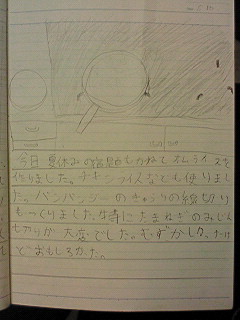 今日夏休みの宿題もかねてオムライスを
作りました。チキンライスなども使りまし
た。バンバンジーのきゅうりの細切り
もつくりました。特にたまねぎのみじん
切りが大変でした。むずかしかったけ
どおもしろかった。